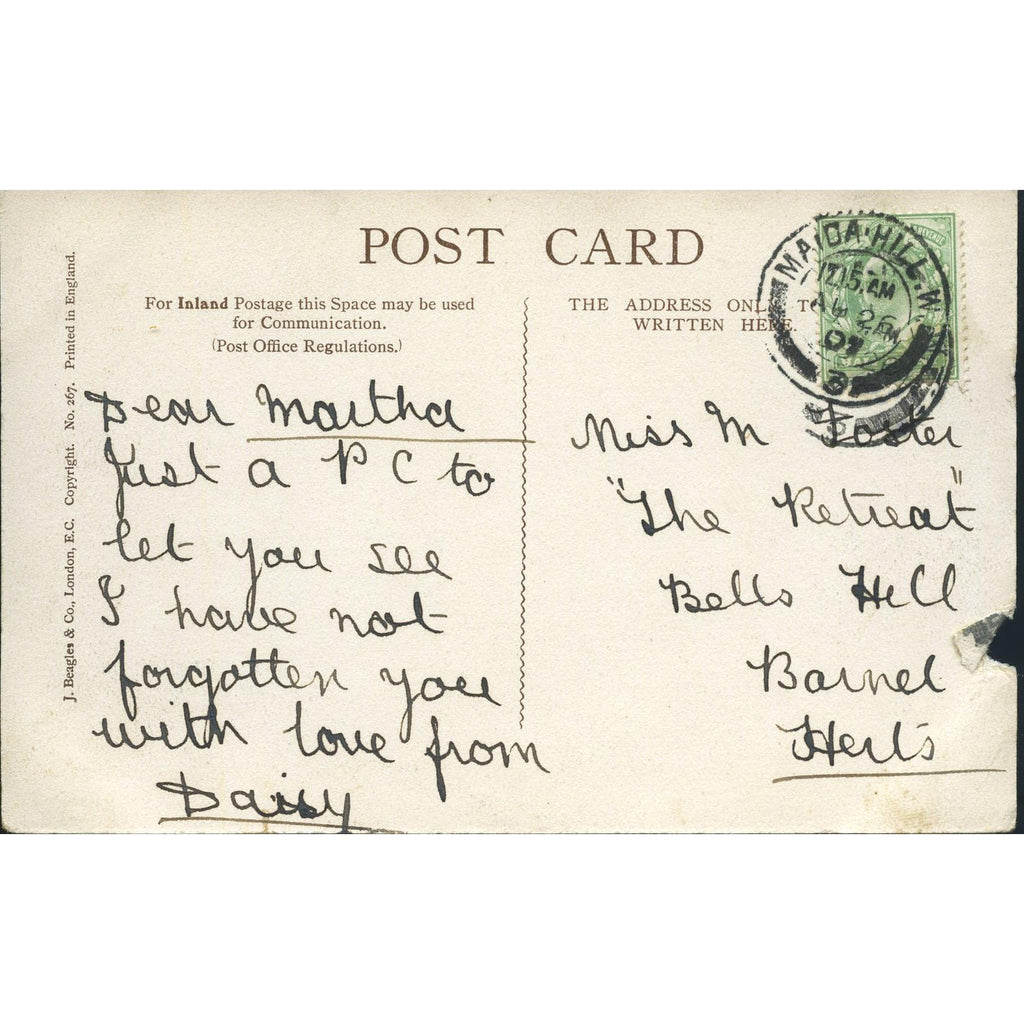 POST CARD
For Inland Postage this Space may be used
for Communication.
(Post Office Regulations.)
THE ADDRESS ONLY TO
WRITTEN HERE.
J. Beagles & Co., London, E.C. Copyright. No. 267. Printed in England.
MAIDA·HILL·W.
12.15 AM
AU 26
07
REVENUE
Dear Martha
Just a P C to
let you see
I have not
forgotten you
with love from
Daisy
Miss M Foster
"The Retreat"
Bells Hill
Barnet
Herts